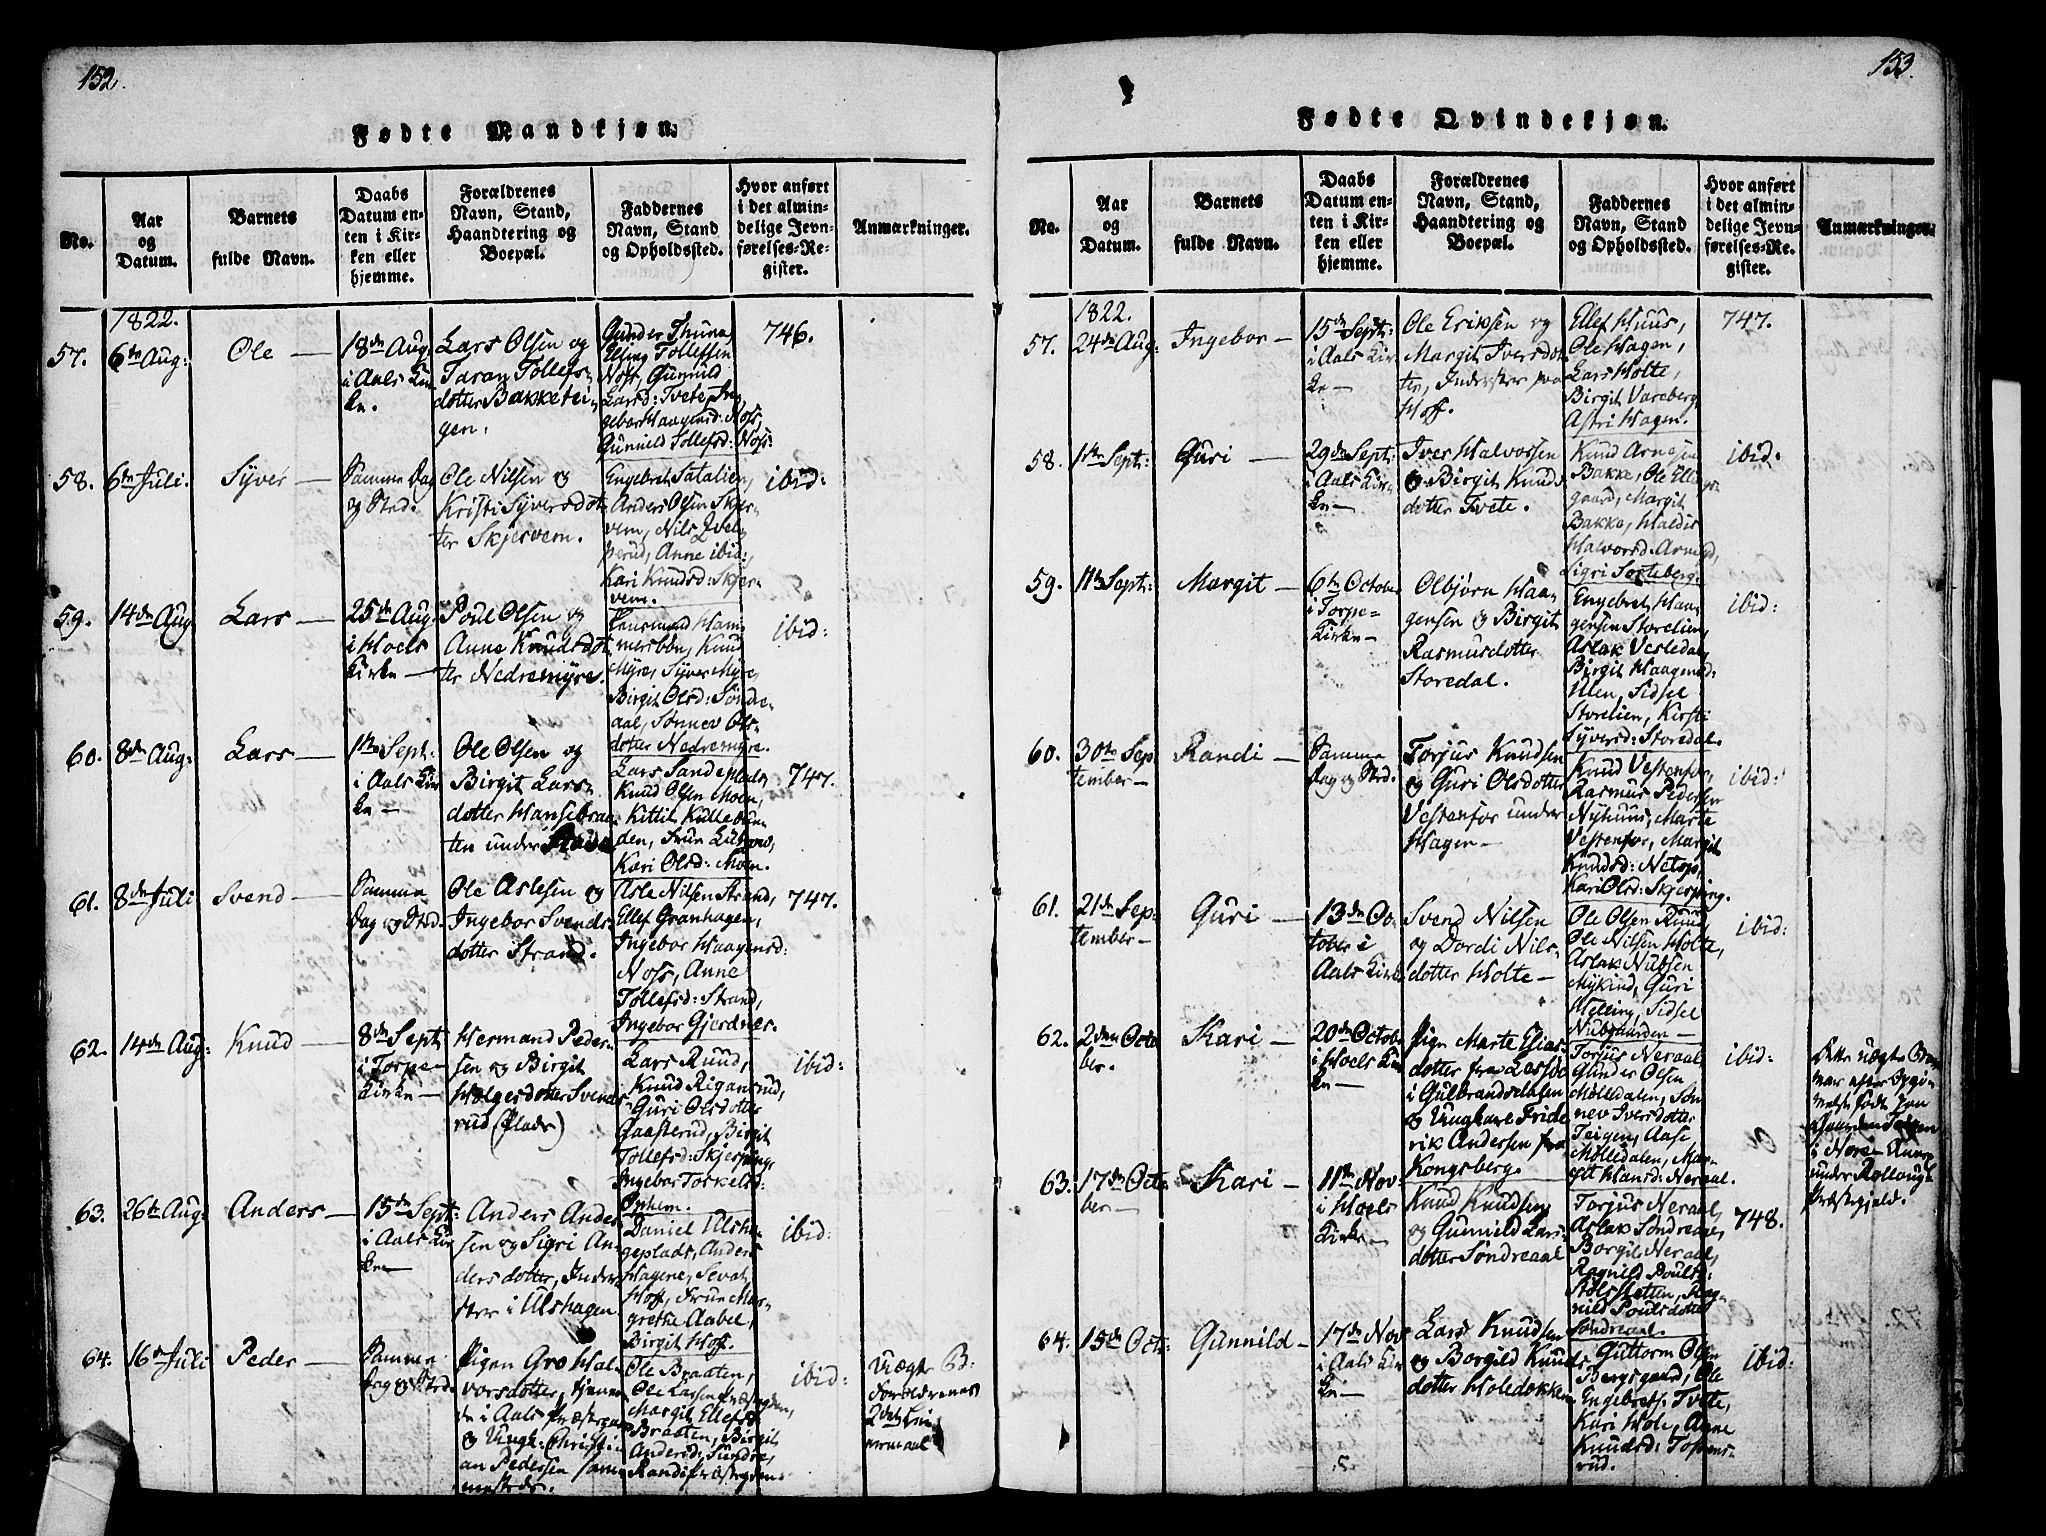 152.
Fødte Mandkjøn.
No.
Aar
og
Datum.
Barnets
fulde Navn.
Daabs
Datum en-
ten i Kir-
ken eller
hjemme.
Forældrenes
Navn, Stand,
Haandtering og
Boepæl.
Faddernes
Navn, Stand
og Opholdssted.
Hvor anført
i det almin-
delige Jevn-
førelses-Re-
gister.
Anmærkninger.
1822.
57.
6te Aug:
Ole
18de Aug:
i Aals Kir-
ke.
Lars Olsen og
Taran Tollefs-
dotter Bakketei-
gen.
Gunder Thune,
Elling Tollefsen
Noss, Gunnild
Larsd: Tvete, In-
gebor Haagensd: Noss,
Gunnild Tollefsd: Noss.
746.
58.
6te Juli.
Syver
Samme Dag
og Sted.
Ole Nilsen og
Kristi Syversdot-
ter Skjervem.
Engebret Satalien,
Anders Olsen Skjer-
vem, Nils Qvel-
perud, Anne ibid:,
Kari Knudsd: Skjer-
vem.
ibid:
59.
14de Aug
Lars
25de Aug
i Hoels
Kirke
Poul Olsen og
Anne Knudsdot-
ter Nedremyre.
Ham-
mersbøn, Knud
Myre, Syver Myre,
Birgit Olsd: Søndre-
aal, Sønnev Ols-
dotter Nedremyre.
ibid:
60.
8de Aug:
Lars
1ste Sept:
i Aals Kir-
ke
Ole Olsen og
Birgit Lars-
dotter Hansebraa-
ten under
Lars Sandeplads,
Knud Olsen Moen,
Kittil Kullebun-
den, Frue Lübrand,
Kari Olsd: Moen.
747.
61.
8de Juli
Svend
Samme
Dag og Sted.
Ole Aslesen og
Ingebor Svends-
dotter Strand.
Asle Nilsen Strand,
Ellef Granhagen,
Ingebor Haagensd:
Noss, Anne
Tollefsd: Strand,
Ingebor Gjerdnes.
747.
62.
14de Aug:
Knud
8de Sept
i Torpe-
Kirke
Hermand Peder-
sen og Birgit
Holgersdotter Svens-
rud (Plads)
Lars Ruud,
Knud Rigansrud,
Guri Olsdotter
Gaasterud, Birgit
Tollefsd: Skjerping,
Ingebor Torkelsd:
Opheim.
ibid:
63.
26te Aug:
Anders
15de Sept:
i Aals Kir-
ke
Anders Ander-
sen og Sigri An-
dersdotter, Inder-
ster i Ulshagen.
Daniel Ulsha-
geplads, Anders
Hagene, Sevat
Hoff, Frue Mar-
grethe Aabel,
Birgit Hoff.
ibid:
64.
16de Juli
Peder
Samme
Dag og Sted.
Pigen Gro Hal-
vorsdotter, tjenen-
de i Aals Præstegaar
og Ungk: Christi-
an Pedersen samme-
steds.
Ole Braaten,
Ole Larsen Præstegden,
Margit Ellefsd:
Braaten, Birgit
Andersd: Sundre,
Randi Præstegden.
ibid:
Uægte B:
Forældrenes
2det Lei-
ermaal
153.
Fødte Qvindekjøn.
No.
Aar
og
Datum.
Barnets
fulde Navn.
Daabs
Datum en-
ten i Kir-
ken eller
hjemme.
Forældrenes
Navn, Stand,
Haandtering og
Boepæl.
Faddernes
Navn, Stand
og Opholdssted.
Hvor anført
i det almin-
delige Jevn-
førelses-Re-
gister.
Anmærkninger.
1822.
57.
24de Aug:
Ingebor
15de Sept:
i Aals Kir-
ke
Ole Eriksen og
Margit Iversdot-
ter, Inderster paa
Hoff.
Ellef Huus,
Ole Hagen,
Lars Holte,
Birgit Vareberg
Astri Hagen.
747.
58.
1ste Sept:
Guri
29de Sept:
i Aals Kir-
ke
Iver Halvorsen
og Birgit Knuds-
dotter Tvete.
Knud Arnesen
Bakke, Ole Ellings-
gaard, Margit
Bakke, Haldis
Halvorsd: Arnegd,
Sigri Sorteberg.
ibid.
59.
11te Sept:
Margit
6te Octobr
i Torpe-
Kirke
Olbjørn Haa-
gensen og Birgit
Rasmusdotter
Storedal.
Engebret Haa-
gensen Storelien,
Aslak Vesledal,
Birgit Haagensd:
Ulen, Sidsel
Storelien, Kirsti
Syversd: Storedal.
ibid:
60.
30te Sep
tember
Randi
Samme
Dag og Sted.
Torjus Knudsen
og Guri Olsdotter
Vestenfor under
Hagen
Knud Vestenfor,
Rasmus Pedersen
Nyhuus, Marte
Vestenfor, Margit
Knudsd: Netop,
Kari Olsd: Skjerping.
ibid:
61.
21de Sep-
tember
Guri
13de Oc-
tober i
Aals Kirke
Svend Nilsen
og Dordi Nils-
dotter Holte
Ole Olsen Ruud,
Ole Nilsen Holte,
Aslak Nubsen
Mykind, Guri
Helling, Sidsel
Nubgaarden
ibid:
62.
2den Octo
ber.
Kari
20de Octobr
i Hoels Kir-
ke
Pigen Marte Elias-
dotter fra Lessøe
i Gulbrandsdahlen
og Ungkarl Fride-
rik Andersen fra
Kongsberg.
Torjus Neraal
Gunder Olsen
Mølledalen, Søn-
nev Iversdotter
Teigen, Aase
Mølledalen, Mar-
git Hansd: Neraal.
ibid:
Dette uægte B
var efter
Født paa
Gaarden Teigen
i Nore
under Rollaugs
Præstegjeld.
63.
17de Octo
ber
Kari
11te Nov
i Hoels
Kirke
Knud Knudsen
og Gunnild Lars-
dotter Søndreaal
Torjus Neraal,
Aslak Søndreaal,
Borgil Neraal,
Ragnild Poulsd:
Stølsletten, Rag-
nild Poulsdotter
Søndreaal.
748.
64.
15de Oct:
Gunnild
17de Nov
i Aals Kir-
ke
Lars Knudsen
og Borgild Knuds-
dotter Holedokken
Guttorm Olsen
Bergsgaard, Ole
Engebrets: Tvete,
Kari Hole, Anne
Knudsd: Topens-
rud.
ibid: